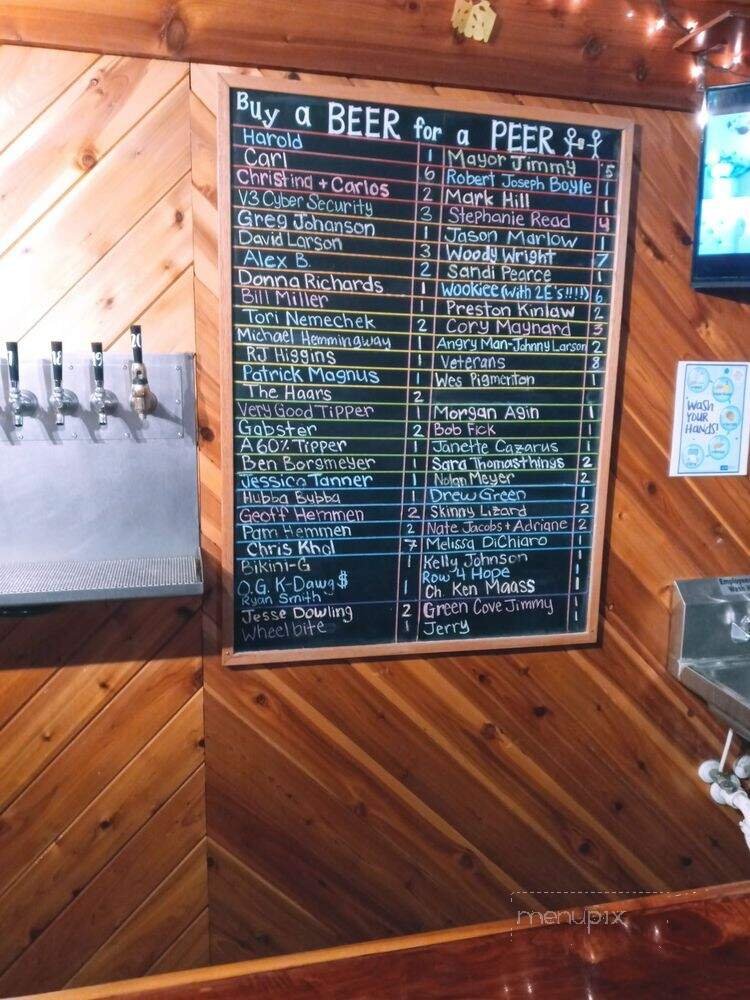 Buy a BEER for a PEER
Harold 1
Carl 6
Christina + Carlos 2
V3 Cyber Security 3
Greg Johanson 1
David Larson 3
Alex B. 2
Donna Richards 1
Bill Miller 1
Tori Nemechek 2
Michael Hemmingway 1
RJ Higgins 1
Patrick Magnus 1
The Haars 2
Very Good Tipper 1
Gabster 2
A 60% Tipper 1
Ben Borgmeyer 1
Jessica Tanner 1
Hubba Bubba 1
Geoff Hemmen 2
Pam Hemmen 2
Chris Khol 7
Bikini-G 1
O.G. K-Dawg $ 1
Ryan Smith
Jesse Dowling 2
Wheelbite 1
Mayor Jimmy 5
Robert Joseph Boyle 1
Mark Hill 1
Stephanie Read 4
Jason Marlow 1
Woody Wright 7
Sandi Pearce 1
Wookiee (with 2E's!!!!) 6
Preston Kinlaw 2
Cory Maynard 3
Angry Man-Johnny Larson 2
Veterans 8
Wes Pigmenton 1
Morgan Agin 1
Bob Fick 1
Janette Cazarus 1
Sara Thomasthings 2
Nolan Meyer 2
Drew Green 1
Skinny Lizard 2
Nate Jacobs + Adriane 2
Melissa DiChiaro 1
Kelly Johnson 1
Row 4 Hope 1
Ch. Ken Maass 1
Green Cove Jimmy 1
Jerry 1
18
19
20
WASH
YOUR
HANDS!
menupix